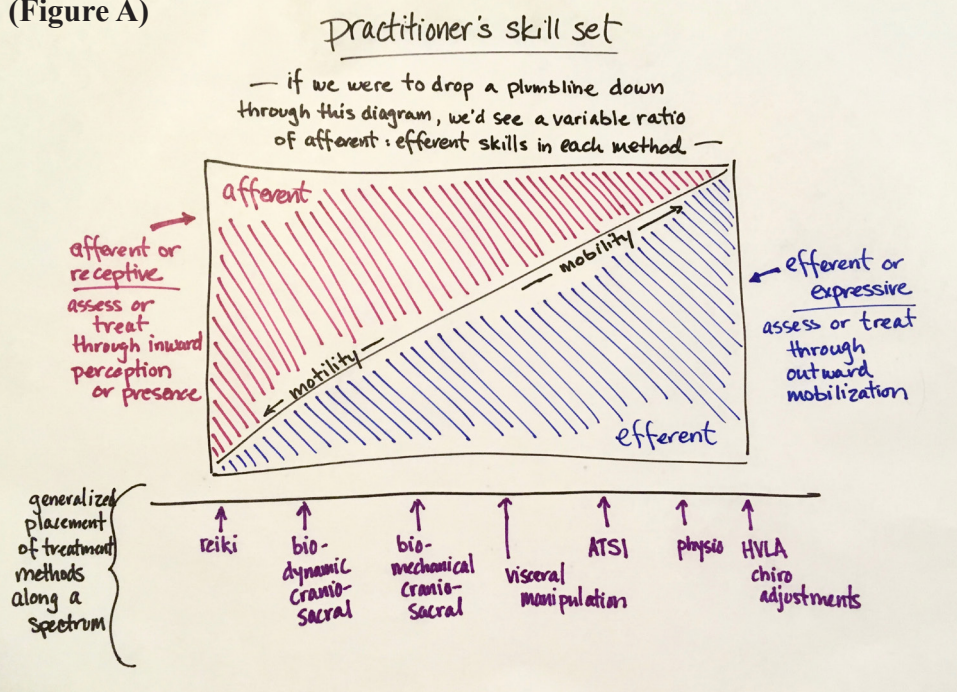 (Figure A)
Practitioner's skill set
— if we were to drop a plumbline down
through this diagram, we'd see a variable ratio
of afferent : efferent skills in each method —
afferent
afferent or
receptive
assess or
treat
through inward
perception
or presence
← motility —
— mobility →
efferent or
expressive
assess or treat
through
outward
mobilization
efferent
generalized
placement
of treatment
methods
along a
spectrum
reiki
bio-
dynamic
cranio-
sacral
bio-
mechanical
cranio-
sacral
visceral
manipulation
ATSI
physio
HVLA
chiro
adjustments